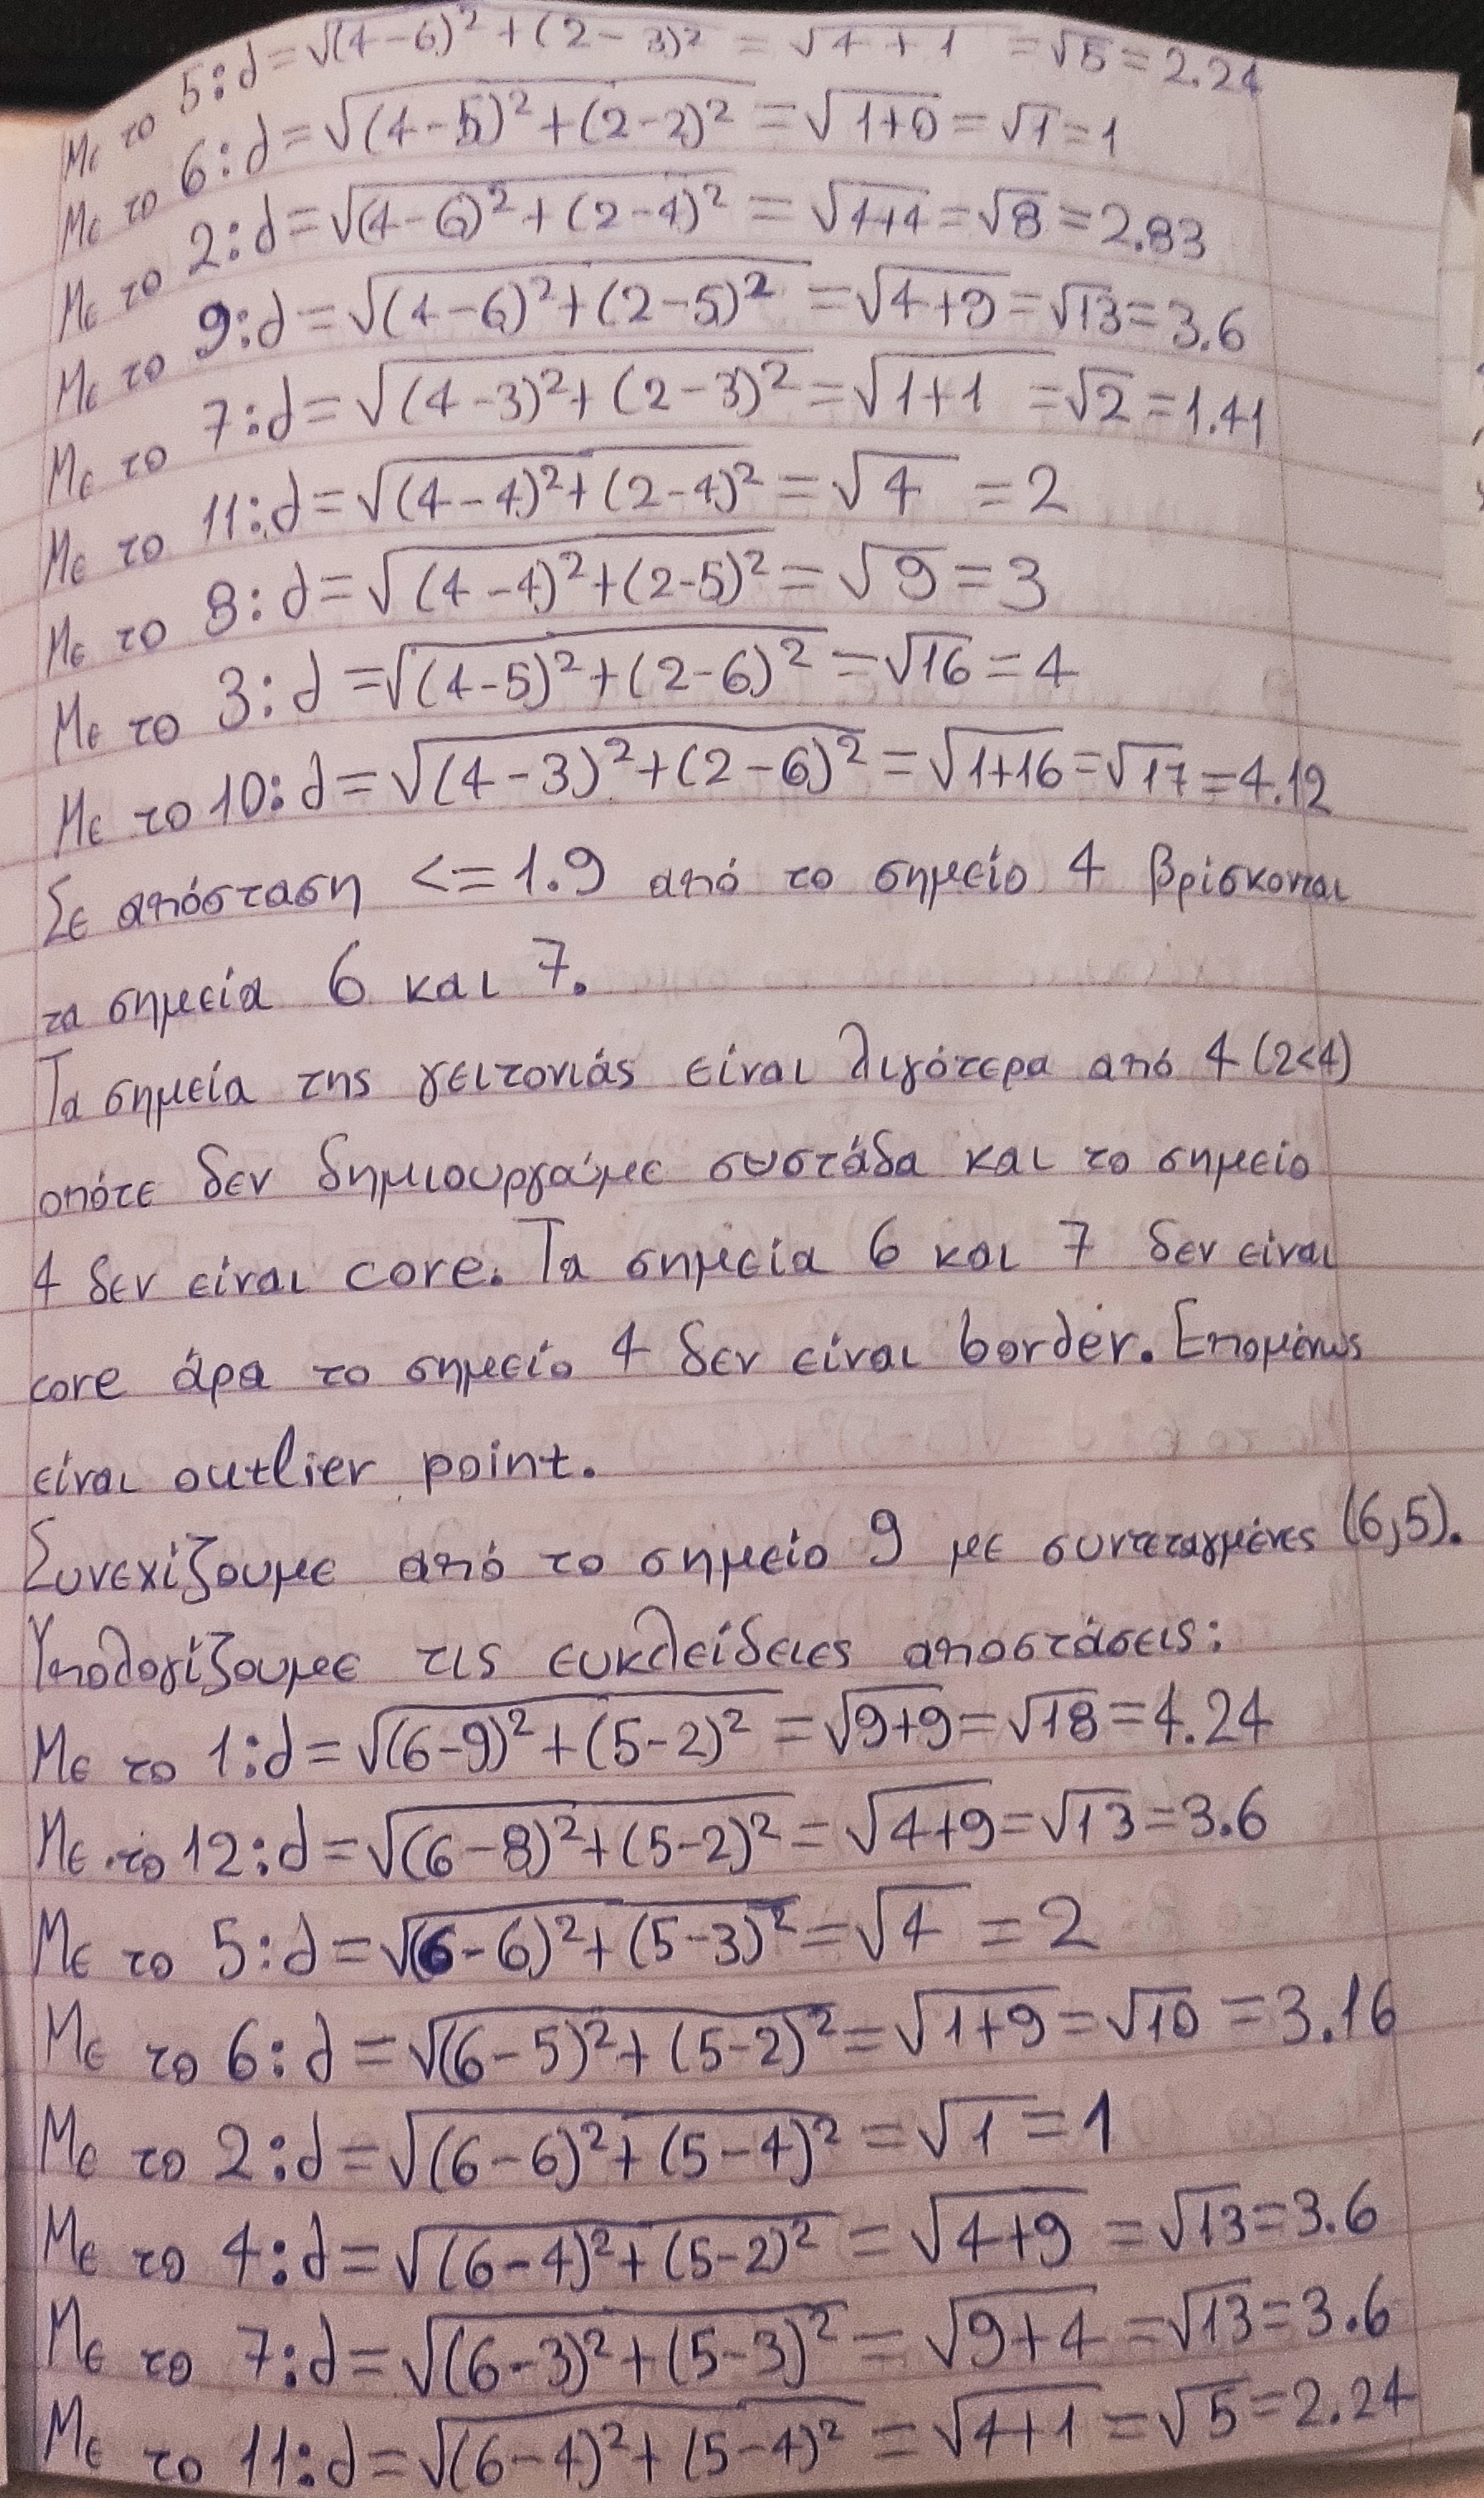 Με το 5:d=√(4-6)²+(2-3)² = √4+1 =√5=2.24
Με το 6:d=√(4-5)²+(2-2)² =√1+0=√1=1
Με το 2:d=√(4-6)²+(2-4)² = √4+4=√8=2.83
Με το 9:d=√(4-6)²+(2-5)² =√4+9=√13=3.6
Με το 7:d=√(4-3)²+(2-3)²=√1+1 =√2=1.41
Με το 11:d=√(4-4)²+(2-4)²=√4 =2
Με το 8:d=√(4-4)²+(2-5)²=√9=3
Με το 3:d=√(4-5)²+(2-6)²=√16=4
Με το 10:d=√(4-3)²+(2-6)²=√1+16=√17=4.12
Σε απόσταση <=1.9 από το σημείο 4 βρίσκονται
τα σημεία 6 και 7.
Τα σημεία της γειτονιάς είναι λιγότερα από 4 (2<4)
οπότε δεν δημιουργούμε συστάδα και το σημείο
4 δεν είναι core. Τα σημεία 6 και 7 δεν είναι
core άρα το σημείο 4 δεν είναι border. Επομένως
είναι outlier point.
Συνεχίζουμε από το σημείο 9 με συντεταγμένες (6,5).
Υπολογίζουμε τις ευκλείδειες αποστάσεις:
Με το 1:d=√(6-9)²+(5-2)²=√9+9=√18=4.24
Με το 12:d=√(6-8)²+(5-2)²=√4+9=√13=3.6
Με το 5:d=√(6-6)²+(5-3)²=√4 =2
Με το 6:d=√(6-5)²+(5-2)²=√1+9=√10=3.16
Με το 2:d=√(6-6)²+(5-4)²=√1=1
Με το 4:d=√(6-4)²+(5-2)²=√4+9=√13=3.6
Με το 7:d=√(6-3)²+(5-3)²=√9+4=√13=3.6
Με το 11:d=√(6-4)²+(5-4)²=√4+1=√5=2.24